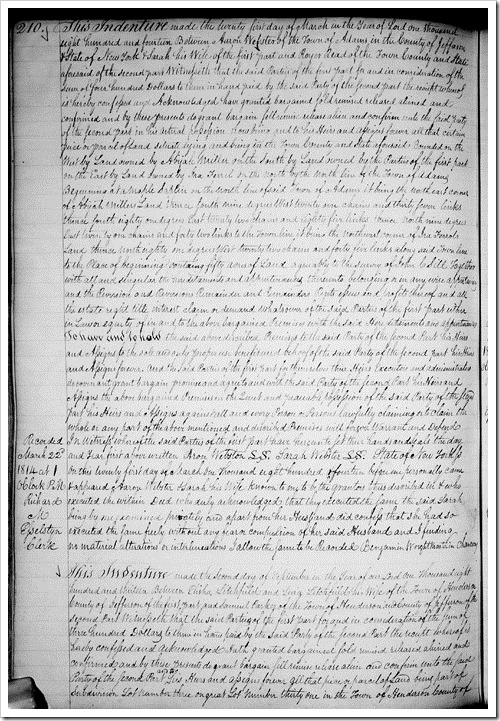 210
This Indenture made the twenty first day of March in the Year of Lord one thousand
eight hundred and fourteen Between Aaron Webster of the Town of Adams in the County of Jefferson
& State of New York & Sarah his Wife of the first part and Roger Read of the Town County and State
aforesaid of the second part Witnesseth that the said Parties of the first part for and in consideration of the
Sum of four hundred Dollars to them in hand paid by the said Party of the second part the receipt whereof
is hereby confessed and Acknowledged have granted bargained sold remised released aliened and
confirmed and by these presents do grant bargain sell remise release alien and confirm unto the said Party
of the second part in his actual possession now being and to his Heirs and assigns forever all that certain
piece or parcel of Land situate lying and being in the Town County and State aforesaid Bounded on the
West by Land owned by Abijah Miller on the South by Land owned by the Parties of the first part
on the East by Land owned by Ira on the north by the north line of the Town of Adams
Beginning at a Maple Saplin on the north line of said Town of Adams it being the north east corner
of Abijah Millers Land thence South nine degrees West twenty one chains and thirty seven links
thence South eighty one degrees East twenty two chains and eighty five links thence North nine degrees
East twenty one chains and forty two links to the Town line it being the northwest corner of Ira
Land thence north eighty one degrees West twenty two chains and forty five links along said Town line
to the Place of beginning containing fifty acres of Land agreeable to the survey of John
with all and singular the hereditaments and appurtenances thereunto belonging or in any wise appertaining
and the Reversion and Reversions Remainder and Remainders Rents issues and profits thereof and all
the estate right title interest claim or demand whatsoever of the said Parties of the first part either
in Law or equity of in and to the above bargained Premises with the said Hereditaments and appurtenances
To have and to hold the said above described Premises to the said Party of the Second Part his Heirs
and Assigns to the sole and only proper use benefit and behoof of the said Party of the Second Part his Heirs
and Assigns forever. And the said Parties of the first Part for themselves their Heirs Executors and administrators
do covenant grant bargain promise and agree to and with the said Party of the second Part his Heirs and
Assigns the above bargained Premises in the quiet and peaceable possession of the said Party of the second
part his Heirs and Assigns against all and every Person or Persons lawfully claiming or to claim the
whole or any part of the above mentioned and described Premises will forever Warrant and Defend
In Witness whereof the said Parties of the first Part have hereunto set their hands and seals the day
and Year first above written Aron Webster L.S. Sarah Webster L.S. State of New York ss
On this twenty first day of March One thousand eight hundred & fourteen before me personally came
Aaron Webster & Sarah his Wife known to me to be the grantors thus described in & who
executed the within Deed who duly acknowledged that they executed the same the said Sarah
being by me examined privately and apart from her Husband did confess that she had so
executed the same freely without any fear or compulsion of her said Husband and I finding
no material alterations or interlineations I allow the same to be Recorded Benjamin Wright Master in Chancery
Recorded
March 22d
1814 at 1
Oclock P.M
Richard
M
Esselstyn
Clerk
This Indenture made the second day of September in the Year of our Lord One Thousand eight
hundred and thirteen Between Elisha Litchfield and Litchfield his Wife of the Town of Henderson
County of Jefferson of the first part and Samuel of the Town of Henderson and County of Jefferson of the
Second Part Witnesseth that the said Parties of the first part for and in consideration of the sum of
three hundred Dollars to them in hand paid by the said Party of the second Part the receipt whereof is
hereby confessed and acknowledged Hath granted bargained sold remised released aliened and
confirmed and by these presents do grant bargain sell remise release alien and confirm unto the said
Party of the second Part and to his Heirs and assigns forever All that piece or parcel of Land being part of
subdivision Lot number three on great Lot number thirty one in the Town of Henderson County of